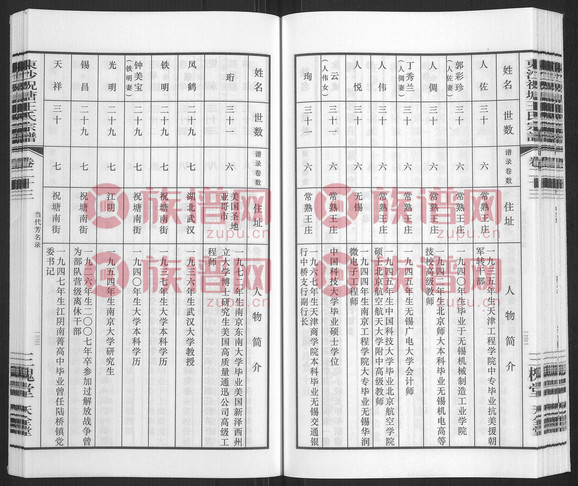 姓名 世数 谱录卷数 住址 人物简介
人佐 三十 六 常熟王庄
军转干部
郭彩珍
(人佐妻) 六 常熟王庄
人倜 三十 六 常熟王庄
技校高级教师
丁秀兰
(人倜妻) 六 常熟王庄 一九四五年生无锡广电大学会计师
人伟 三十 六 常熟王庄
硕士北京航空航天大学附中高级教师
人悦 三十 六 无锡
微电子工程师
云
(人伟女) 三十一 六 常熟王庄 中国科技大学毕业硕士学位
珣 三十一 六 常熟王庄 一九六七年生天津商学院本科毕业无锡交通银
行中桥支行副行长
东沙祝塘王氏宗谱
三槐堂
姓名 世数 谱录卷数 住址 人物简介
珩 三十一 六 美国圣地
亚哥市 一九七一年生南京东南大学毕业美国新泽西州
立大学博士研究生美国高质量通迅公司高级工
程
凤鹤 二十九 七 湖北武汉 一九三六年生武汉大学教授
铁明 二十九 七 祝塘南街 一九三七年生大学本科学历
钟美宝
(铁明妻) 七 祝塘南街 一九四〇年生大学本科学历
光明 二十九 七 江阴 一九五四年生南京大学研究生
锡昌 二十九 七 祝塘南街 一九二六年生二〇〇七年卒参加过解放战争曾
为部队营级离休干部
天祥 三十 七 祝塘南街 一九四七年生江阴南菁高中毕业曾任陆桥镇党
委书记
东沙祝塘王氏宗谱
当代芳名录
三槐堂
族谱网
zupu.cn
族谱网
zupu.cn